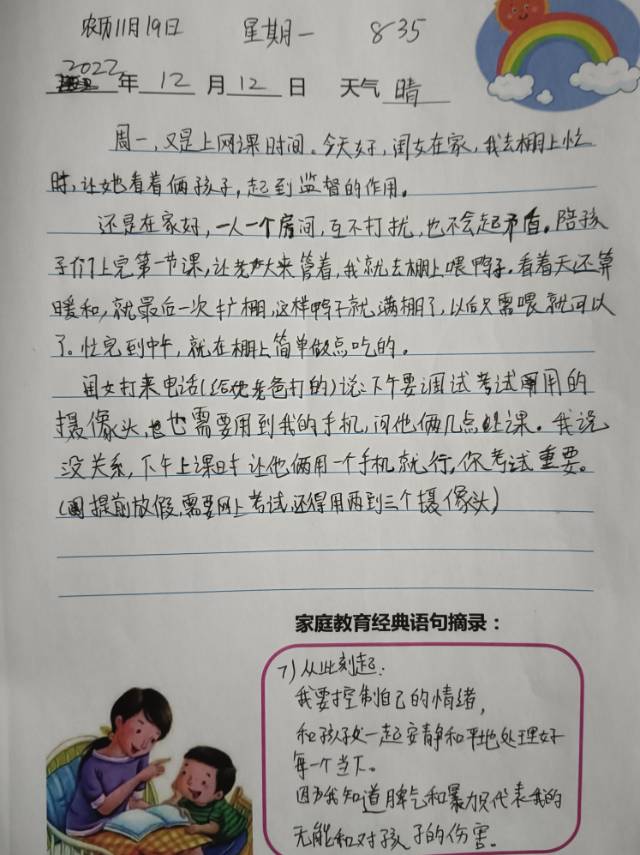 农历11月19日 星期一 8:35
2022年12月12日 天气 晴
周一,又是上网课时间。今天好,闺女在家,我去棚上忙
时,让她看着俩孩子,起到监督的作用。
还是在家好,一人一个房间,互不打扰,也不会起矛盾。陪孩
子们上完第一节课,让老大来管着,我就去棚上喂鸭子。看着天还算
暖和,就最后一次扩棚,这样鸭子就满棚了,以后只需喂就可以
了。忙完到中午,就在棚上简单做点吃的。
闺女打来电话(给她老爸打的)说:下午要调试考试用的
摄像头,也需要用到我的手机,问他俩几点上课。我说
没关系,下午上课时让他俩用一个手机就行,你考试重要。
(提前放假,需要网上考试,还得用两到三个摄像头)
家庭教育经典语句摘录:
7)从此刻起:
我要控制自己的情绪,
和孩子处一起安静和平地处理好
每一个当下。
因为我知道脾气和暴力仅代表我的
无能和对孩子的伤害。